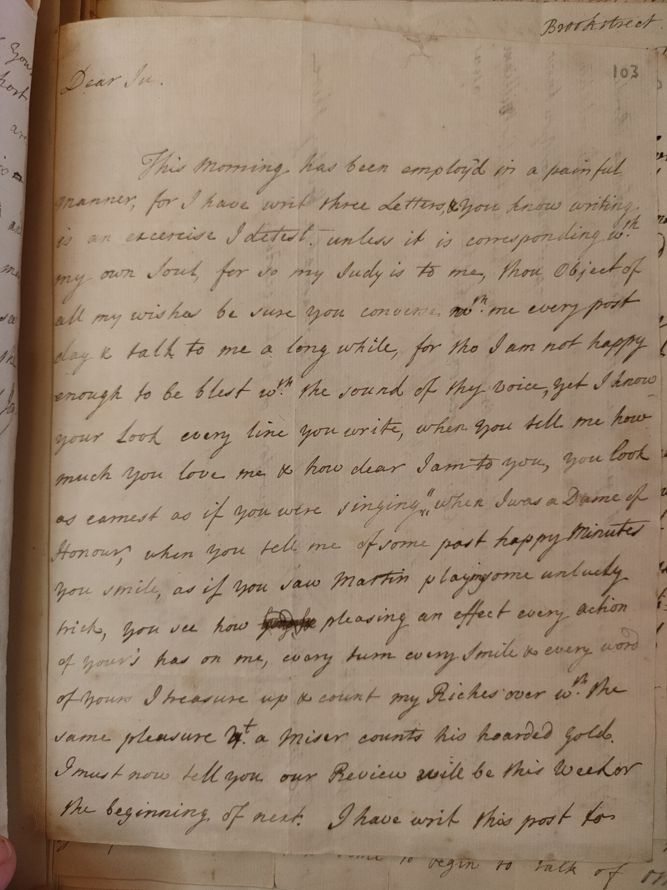 Brookstreet
103
Dear Ju.
This Morning has been employ'd in a painful
manner, for I have writ three Letters, & you know writing
is an excercise I detest. unless it is corresponding wth.
my own Soul, for so my Judy is to me, thou Object of
all my wishes be sure you converse wth. me every post
day & talk to me a long while, for tho I am not happy
enough to be blest wth. the sound of thy voice, yet I know
your Look every line you write, when you tell me how
much you love me & how dear I am to you, you look
as earnest as if you were singing "when I was a Dame of
Honour", when you tell me of some past happy Minutes
you smile, as if you saw Mattin playing some unlucky
trick, you see how pleasing an effect every action
of your's has on me, every turn every Smile & every word
of yours I treasure up & count my Riches over wth. the
same pleasure yt. a Miser counts his hoarded gold.
I must now tell you our Review will be this Week or
the beginning of next. I have writ this post to
to begin to talk of